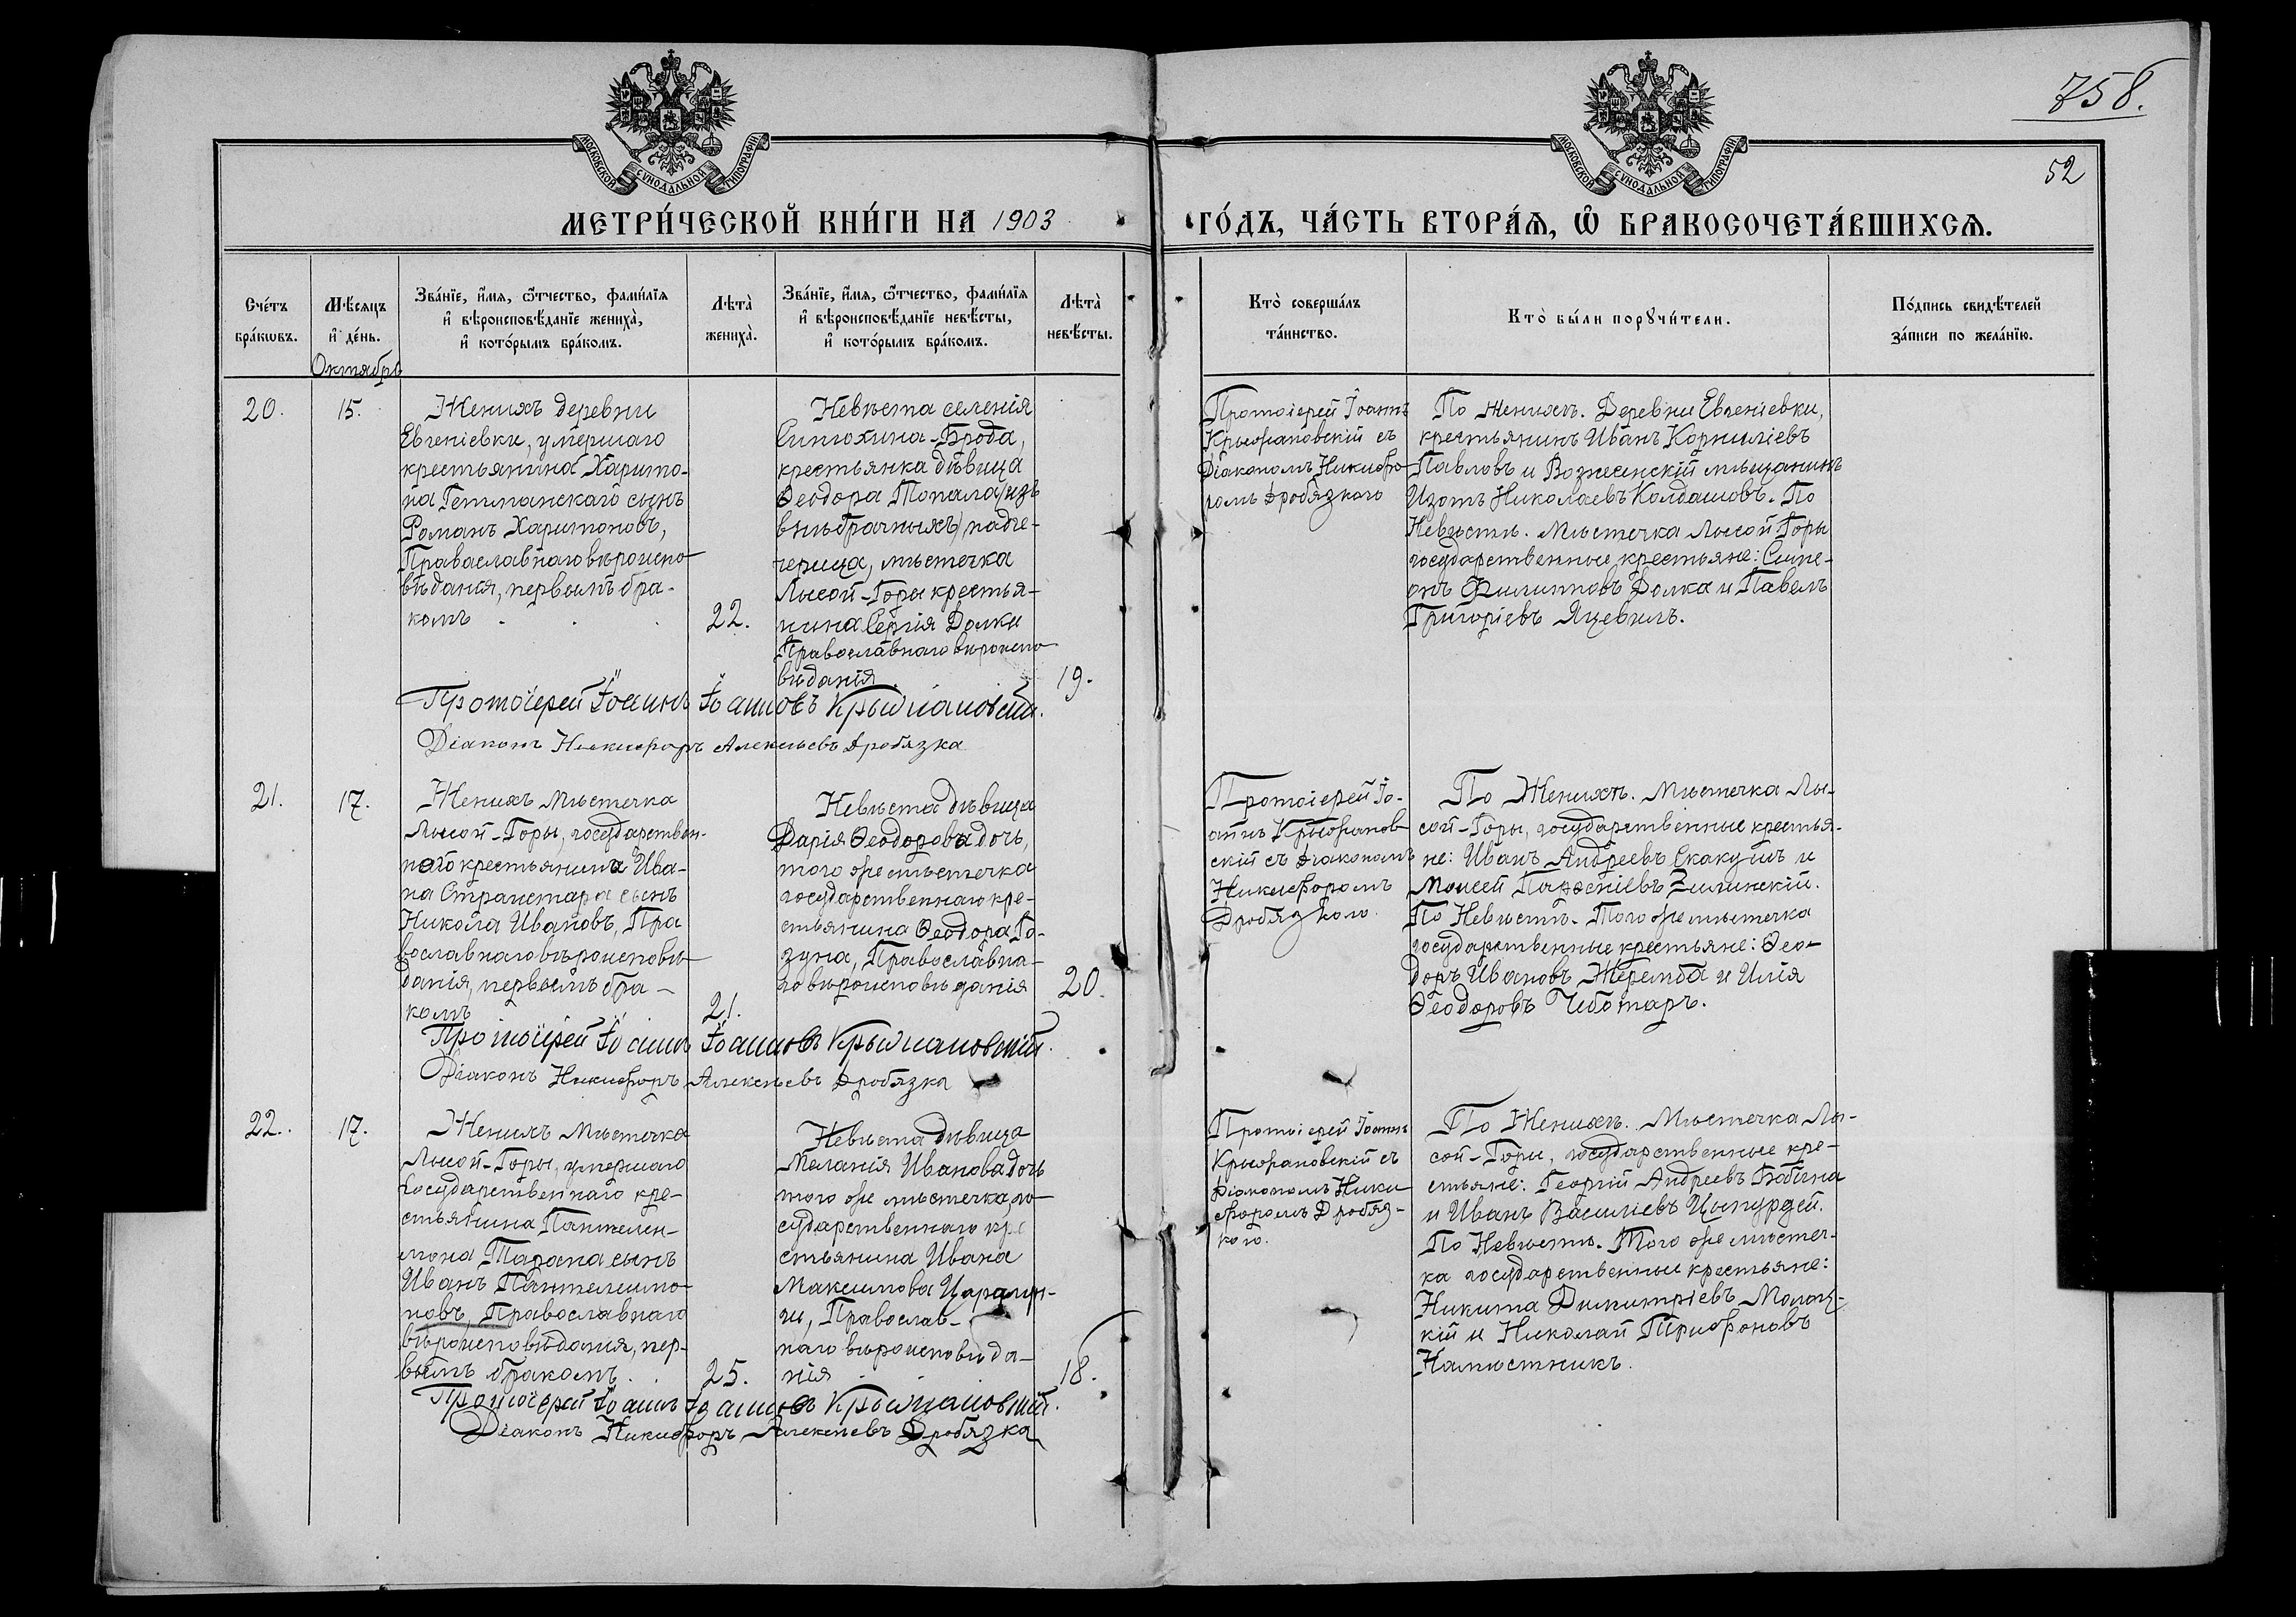 758.
52
МОСКОВСКОЙ СѴНОДАЛЬНОЙ ТИПОГРАФІИ
МОСКОВСКОЙ СѴНОДАЛЬНОЙ ТИПОГРАФІИ
МЕТРИ́ЧЕСКОЙ КНИ́ГИ НА 1903 ГО́ДЪ, ЧА́СТЬ ВТОРА́Ѧ, Ѽ БРАКОСОЧЕТА́ВШИХСѦ.
Сче́тъ
бра́кѡвъ.
Мѣ́сяцъ
и҆ де́нь.
Октябрь
Зва́нїе, и҆́мя, ѻ҆́тчество, фами́лїя
и҆ вѣроисповѣ́данїе жениха̀,
и҆ кото́рымъ бра́комъ.
Лѣта̀
жениха̀.
Зва́нїе, и҆́мя, ѻ҆́тчество, фами́лїя
и҆ вѣроисповѣ́данїе невѣ́сты,
и҆ кото́рымъ бра́комъ.
Лѣта̀
невѣ́сты.
Кто̀ соверша́лъ
та́инство.
Кто̀ бы́ли порꙋчи́тели.
По́дпись свидѣ́телей
за́писи по жела́нїю.
20.
15.
Женихъ деревни
Евгеніевки, умершаго
крестьянина Харито-
на Гетманскаго сынъ
Романъ Харитоновъ,
Православнаго вѣроиспо
вѣданія, первымъ бра-
комъ
22.
Невѣста селенія
Синюхина-Брода,
крестьянка дѣвица
Ѳеодора Топала (изъ
внѣбрачныхъ) падче-
черица, мѣстечка
Лысой-Горы крестья-
нина Сергія Долки
Православнаго вѣроиспо
вѣданія
19.
Протоіерей Іоаннъ
Крыжановскій съ
Діакономъ Никифо
ромъ Дробязкого
По Женихѣ. Деревни Евгеніевки,
крестьянинъ Иванъ Корниліевъ
Павловъ и Вознесенскій мѣщанинъ
Изотъ Николаевъ Колдашовъ. По
Невѣстѣ. Мѣстечка Лысой Горы
государственные крестьяне: Симе-
онъ Филипповъ Долка и Павелъ
Григоріевъ Яцевилъ.
Протоіерей Іоаннъ Іоанновъ Крыжановскій.
Діаконъ Никифоръ Алексѣевъ Дробязка
21.
17.
Женихъ Мѣстечка
Лысой-Горы, государствен-
наго крестьянина Ива-
на Странстара сынъ
Никола Ивановъ, Пра
вославнаго вѣроисповѣ
данія, первымъ бра-
комъ
21.
Невѣста дѣвица
Дарія Ѳеодорова дочь,
того же мѣстечка
государственнаго кре-
стьянина Ѳеодора Го-
зуна, Православна-
го вѣроисповѣданія
20.
Протоіерей Іо-
аннъ Крыжанов
скій съ Діакономъ
Никифоромъ
Дробязкого.
По Женихѣ. Мѣстечка Лы-
сой-Горы, государственные крестья-
не: Иванъ Андреевъ Скакунъ и
Моисей Зилинскій.
По Невѣстѣ. Того же мѣстечка
государственные крестьяне: Ѳео-
доръ Ивановъ Жеремба и Илія
Ѳеодоровъ Чеботаръ.
Протоіерей Іоаннъ Іоанновъ Крыжановскій.
Діаконъ Никифоръ Алексѣевъ Дробязка
22.
17.
Женихъ Мѣстечка
Лысой-Горы, умершаго
государственнаго кре-
стьянина Пантелеи-
мона Тарана сынъ
Иванъ Пантелеимо-
новъ, Православнаго
вѣроисповѣданія, пер-
вымъ бракомъ.
25.
Невѣста дѣвица
Меланія Иванова дочь
того же мѣстечка, го-
сударственнаго кре
стьянина Ивана
Максимова
Православ-
наго вѣроисповѣда-
нія
18.
Протоіерей Іоаннъ
Крыжановскій съ
Діакономъ Ники
форомъ Дробяз-
кого.
По Женихѣ. Мѣстечка Лы-
сой-Горы, государственные кре-
стьяне: Георгій Андреевъ Бобына
и Иванъ Василіевъ Цыпурдей.
По Невѣстѣ. Того же мѣстеч-
ка государственные крестьяне:
Никита Димитріевъ Молоц-
кій и Николай Трифоновъ
Намѣстникъ.
Протоіерей Іоаннъ Іоанновъ Крыжановскій.
Діаконъ Никифоръ Алексѣевъ Дробязка